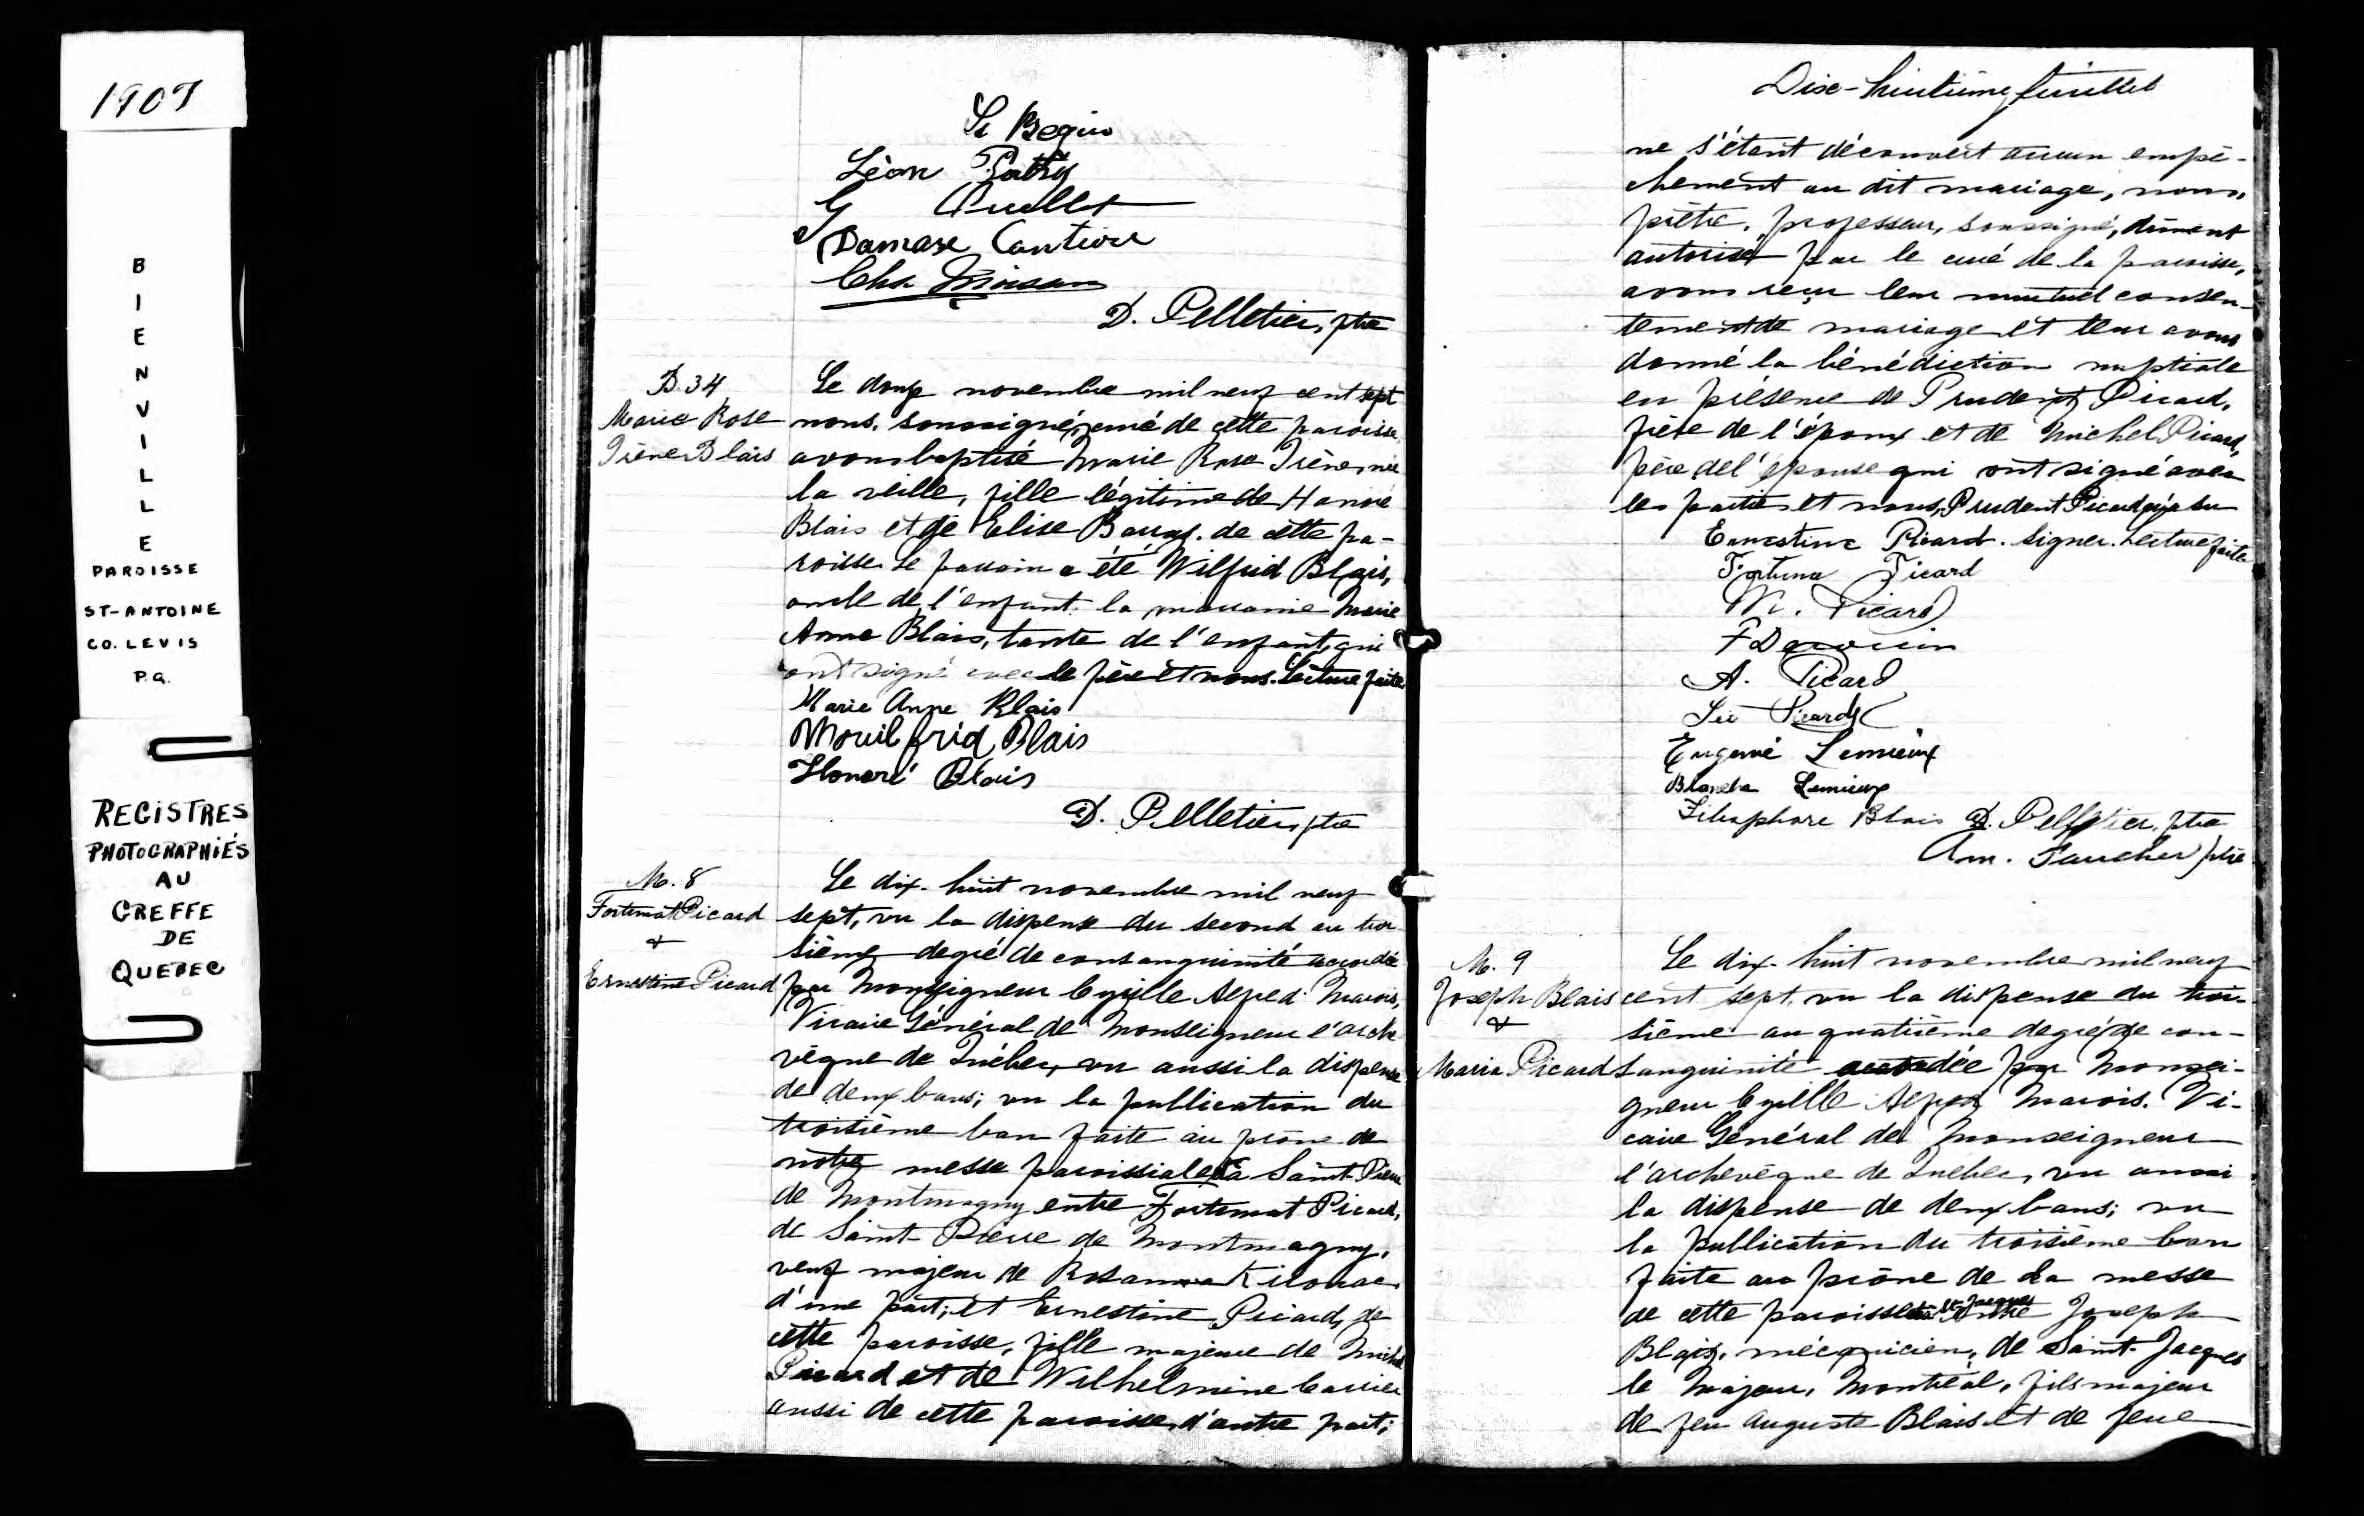 1907
B
I
E
N
V
I
L
L
E
PAROISSE
ST-ANTOINE
CO. LEVIS
P.Q.
REGISTRES
PHOTOGRAPHIÉS
AU
GREFFE
DE
QUEBEC
Begin
Léon Patry
G Ouellet
Damase Cantin
Chs.
D. Pelletier, ptre
B. 34
Marie Rose
Irène Blais
Le douze novembre mil neuf cent sept
nous, soussigné, curé de cette paroisse
avons baptisé Marie Rose Irène, née
la veille, fille légitime de Honoré
Blais et de Elise de cette pa-
roisse. Le parrain a été Wilfrid Blais,
oncle de l'enfant, la marraine Marie
Anne Blais, tante de l'enfant, qui
ont signé avec le père et nous. Lecture faite
Marie Anne Blais
Blais
Honoré Blais
D. Pelletier, ptre
M. 8
Fortunat Picard
&
Ernestine Picard
Le dix-huit novembre mil neuf
sept, vu la dispense du second au troi-
sième degré de consanguinité accordée
par Monseigneur Cyrille Alfred Marois,
Vicaire Général de Monseigneur l'arche
vêque de Québec, vu aussi la dispense
de deux bans; vu la publication du
troisième ban faite au prône de
notre messe paroissiale à Saint-Pierre
de Montmagny entre Fortunat Picard,
de Saint-Pierre de Montmagny,
veuf majeur de Rosanna Kirouac
d'une part; et Ernestine Picard, de
cette paroisse, fille majeure de Michel
Picard et de Wilhelmine Carrier
aussi de cette paroisse, d'autre part;
Dix-huitième feuillet
ne s'étant découvert aucun empê-
chement au dit mariage, nous,
prêtre, professeur, soussigné, dûment
autorisé par le curé de la paroisse,
avons reçu leur mutuel consen-
tement de mariage et leur avons
donné la bénédiction nuptiale
en présence de Prudent Picard,
frère de l'époux et de Michel Picard,
père de l'épouse qui ont signé avec
les parties et nous, Prudent Picard su
Ernestine Picard. signer. Lecture faite
Picard
M. Picard
F
A. Picard
Picard
Eugenie Lemieux
Lemieux
Blais D. Pelletier, ptre
Am. Faucher ptre
M. 9
Joseph Blais
&
Maria Picard
Le dix-huit novembre mil neuf
cent sept, vu la dispense du troi-
sième au quatrième degré de con-
sanguinité accordée par Monsei-
gneur Cyrille Alfred Marois, Vi-
caire Général de Monseigneur
l'archevêque de Québec, vu aussi
la dispense de deux bans; vu
la publication du troisième ban
faite au prône de la messe
de cette paroisse St Jacques entre Joseph
Blais, mécanicien, de Saint-Jacques
le Majeur, Montréal, fils majeur
de feu Auguste Blais et de feue